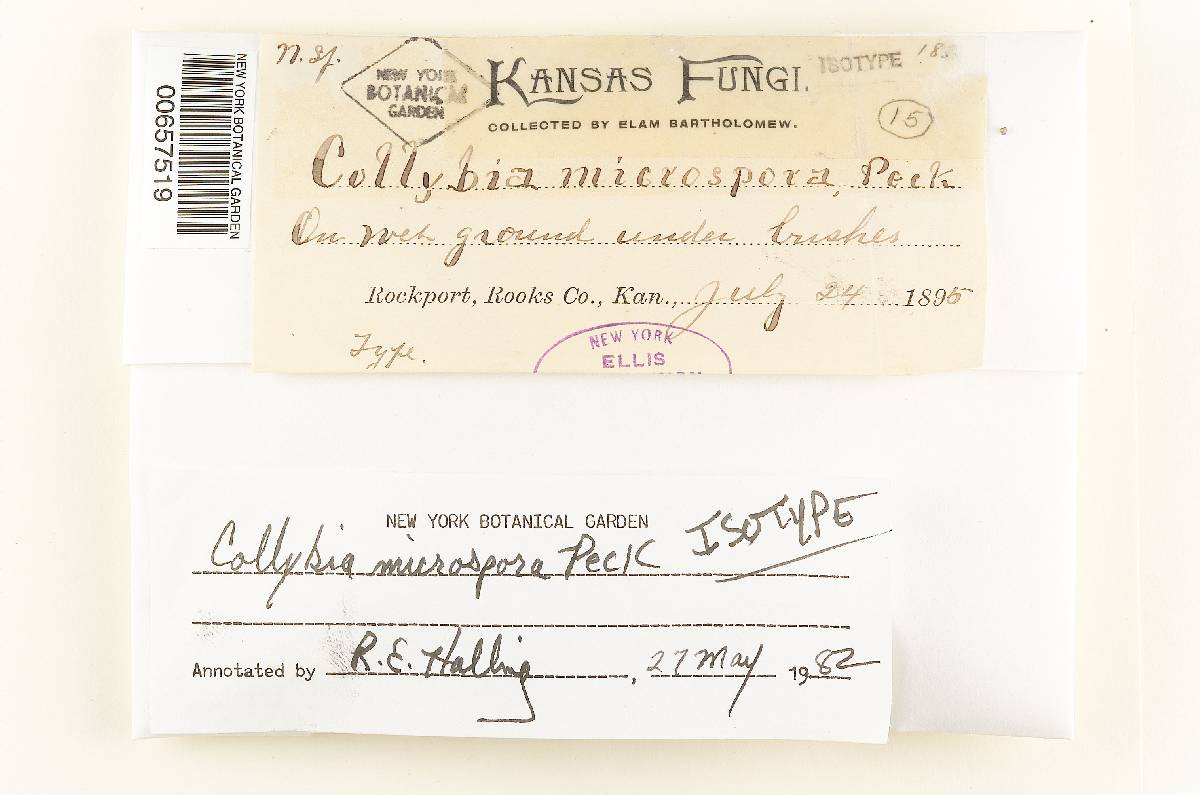 NEW YORK BOTANICAL GARDEN
00657519
n. sp.
NEW YORK
BOTANICAL
GARDEN
KANSAS FUNGI.
ISOTYPE
COLLECTED BY ELAM BARTHOLOMEW.
15
Collybia microspora, Peck
On wet ground under bushes
Rockport, Rooks Co., Kan., July 24 1895
Type.
NEW YORK
ELLIS
NEW YORK BOTANICAL GARDEN
ISOTYPE
Collybia microspora Peck
Annotated by R.E. Halling, 27 May 1982